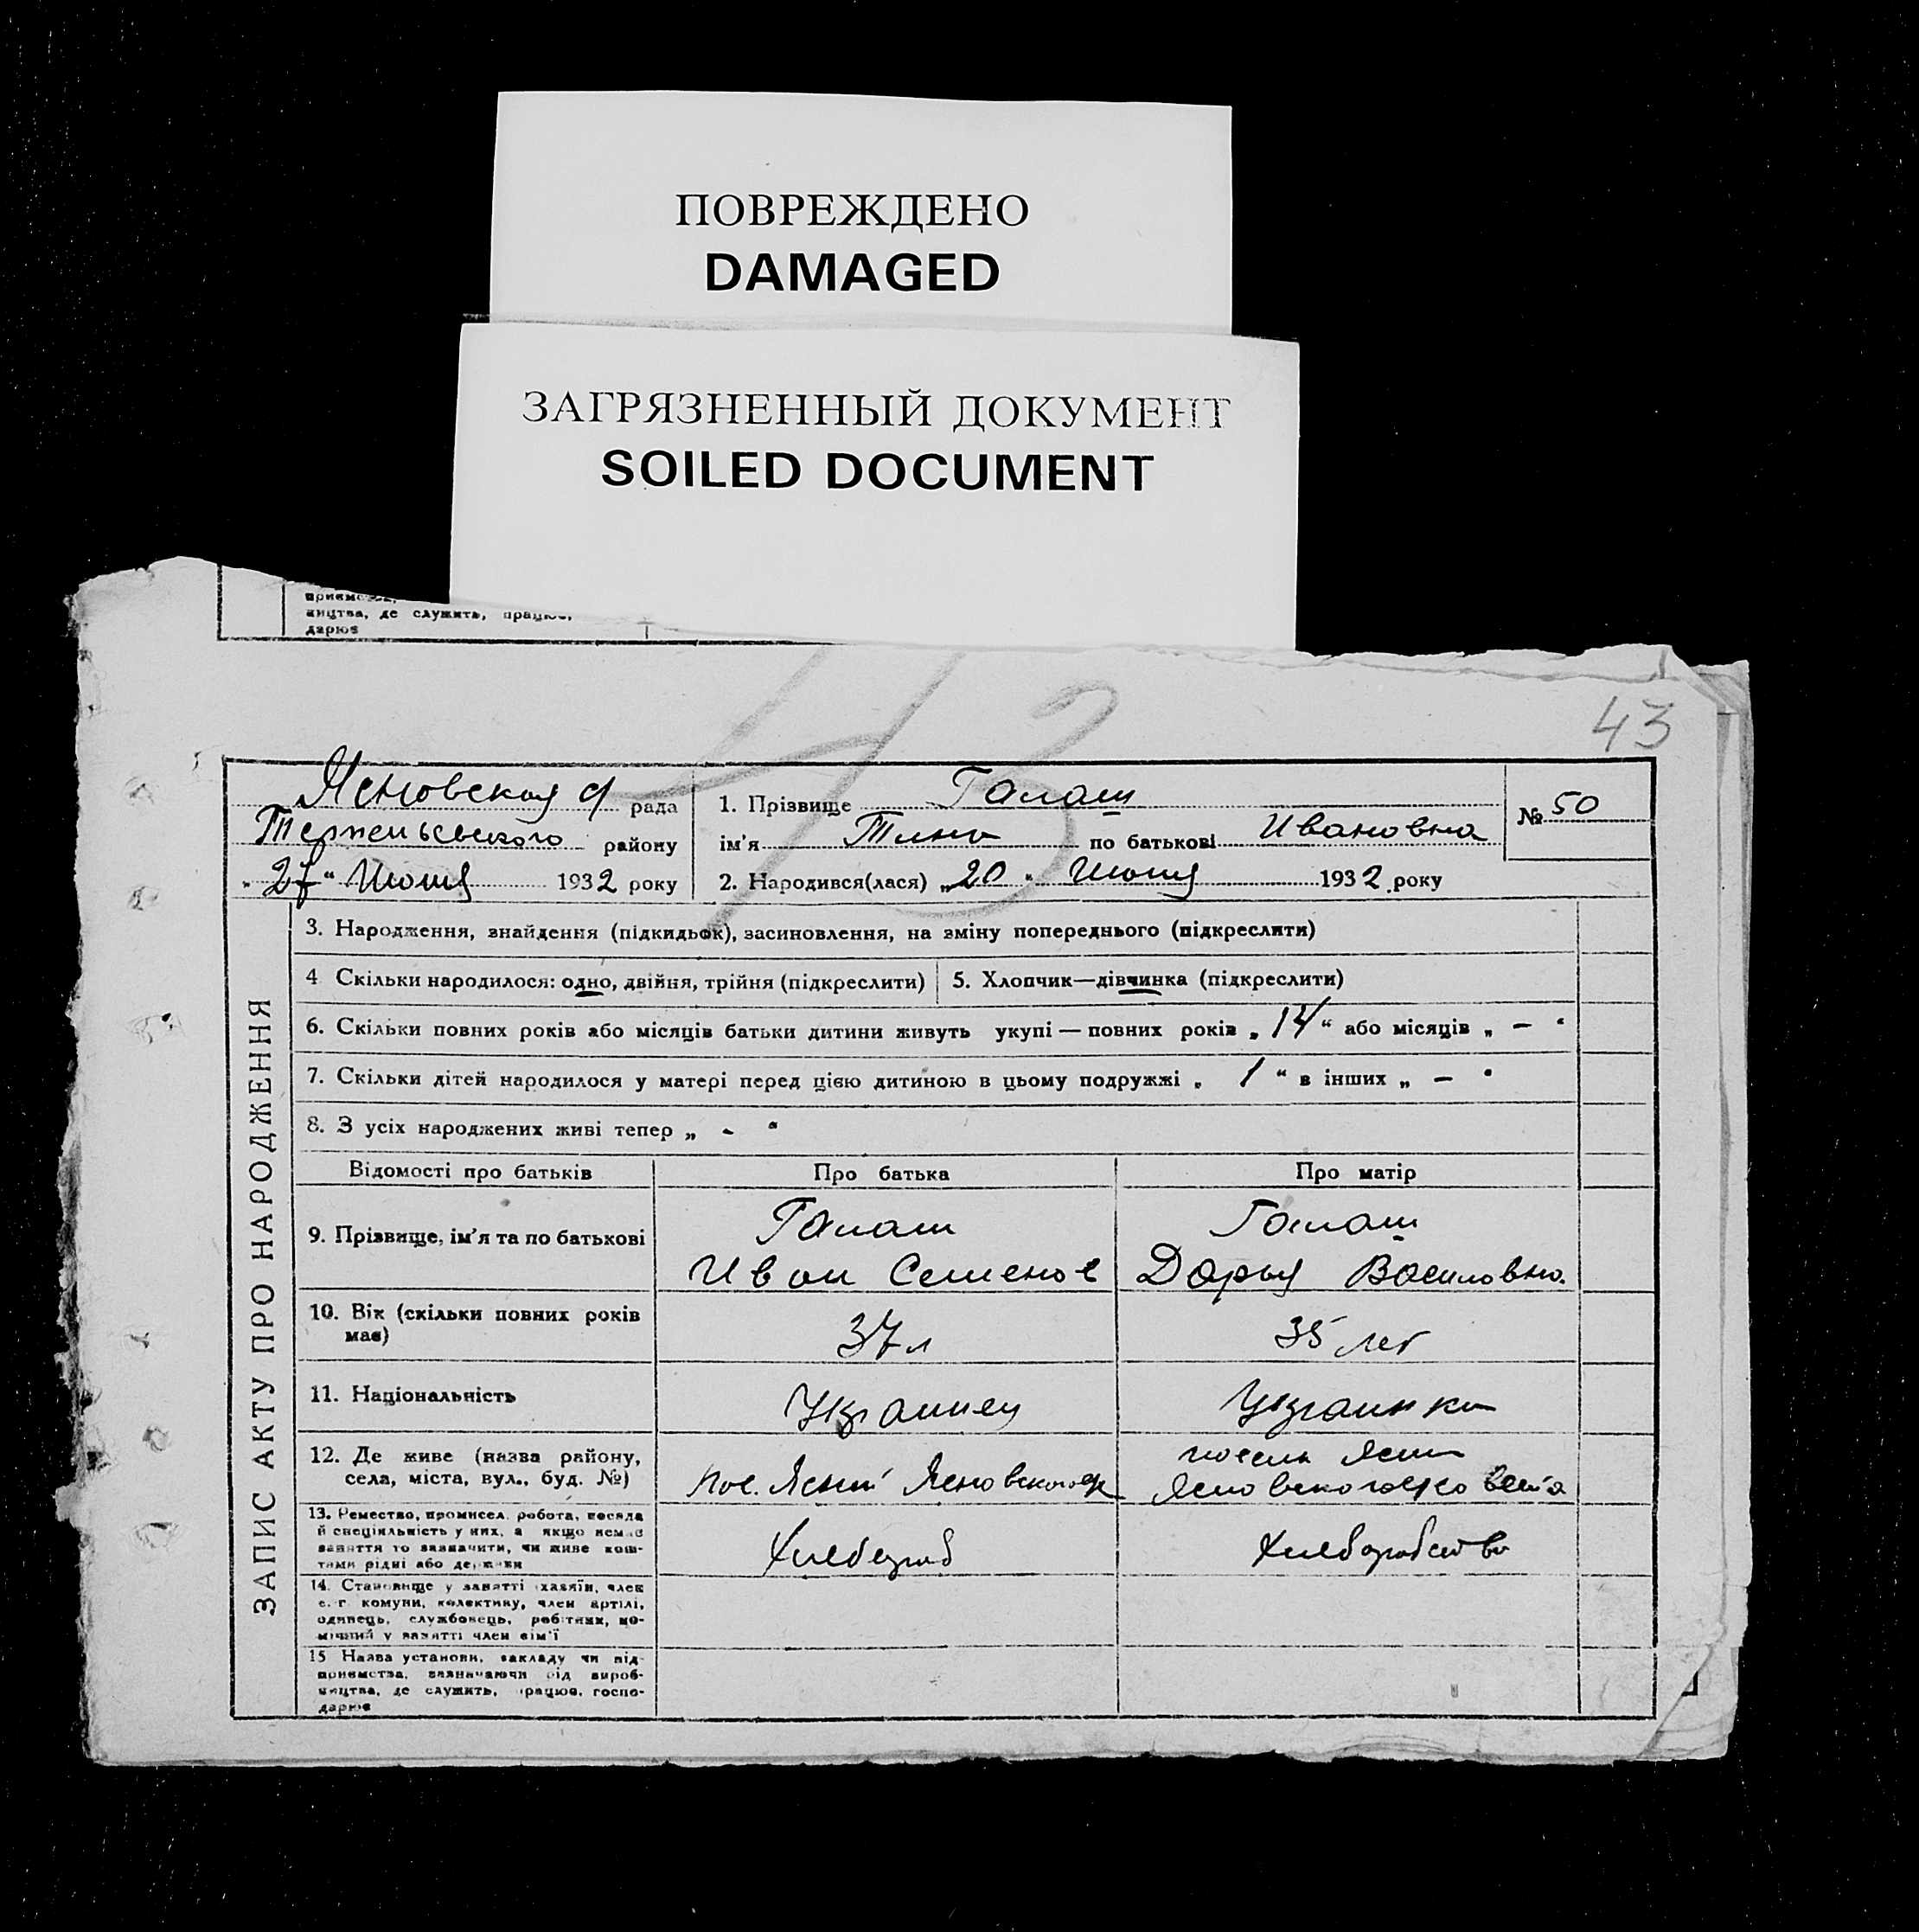 ПОВРЕЖДЕНО
DAMAGED
ЗАГРЯЗНЕННЫЙ ДОКУМЕНТ
SOILED DOCUMENT
ництва, де служить, працює,
дарює
43
43
рада
району
"27" Июня 1932 року
1. Прізвище Галаш
ім'я по батькові Ивановна
№ 50
2. Народився(лася) „20" Июня 1932 року
ЗАПИС АКТУ ПРО НАРОДЖЕННЯ
3. Народження, знайдення (підкидьок), засиновлення, на зміну попереднього (підкреслити)
4 Скільки народилося: одно, двійня, трійня (підкреслити)
5. Хлопчик—дівчинка (підкреслити)
6. Скільки повних років або місяців батьки дитини живуть укупі — повних років „14" або місяців „ – "
7. Скільки дітей народилося у матері перед цією дитиною в цьому подружжі „ 1 " в інших „ – "
8. З усіх народжених живі тепер „ - "
Відомості про батьків
Про батька
Про матір
9. Прізвище, ім'я та по батькові
Галаш
Иван Семенов
Галаш
Дарья Василовна.
10. Вік (скільки повних років
має)
37 л
35 лет
11. Національність
Украинец
Украинка
12. Де живе (назва району,
села, міста, вул., буд. №)
пос. Ясный
13. Ремество, промисел, робота, посада
й спеціяльність у них, а якщо немає
заняття то зазначити, чи живе кош-
тами рідні або держави
Хлебороб
Хлеборобство
14. Становище у занятті (хазяїн, член
с.-г комуни, колективу, член артілі,
одинець, службовець, робітник, по-
мічний у занятті член сім'ї
15 Назва установи, закладу чи під-
приємства, зазначаючи від вироб-
ництва, де служить, працює, госпо-
дарює